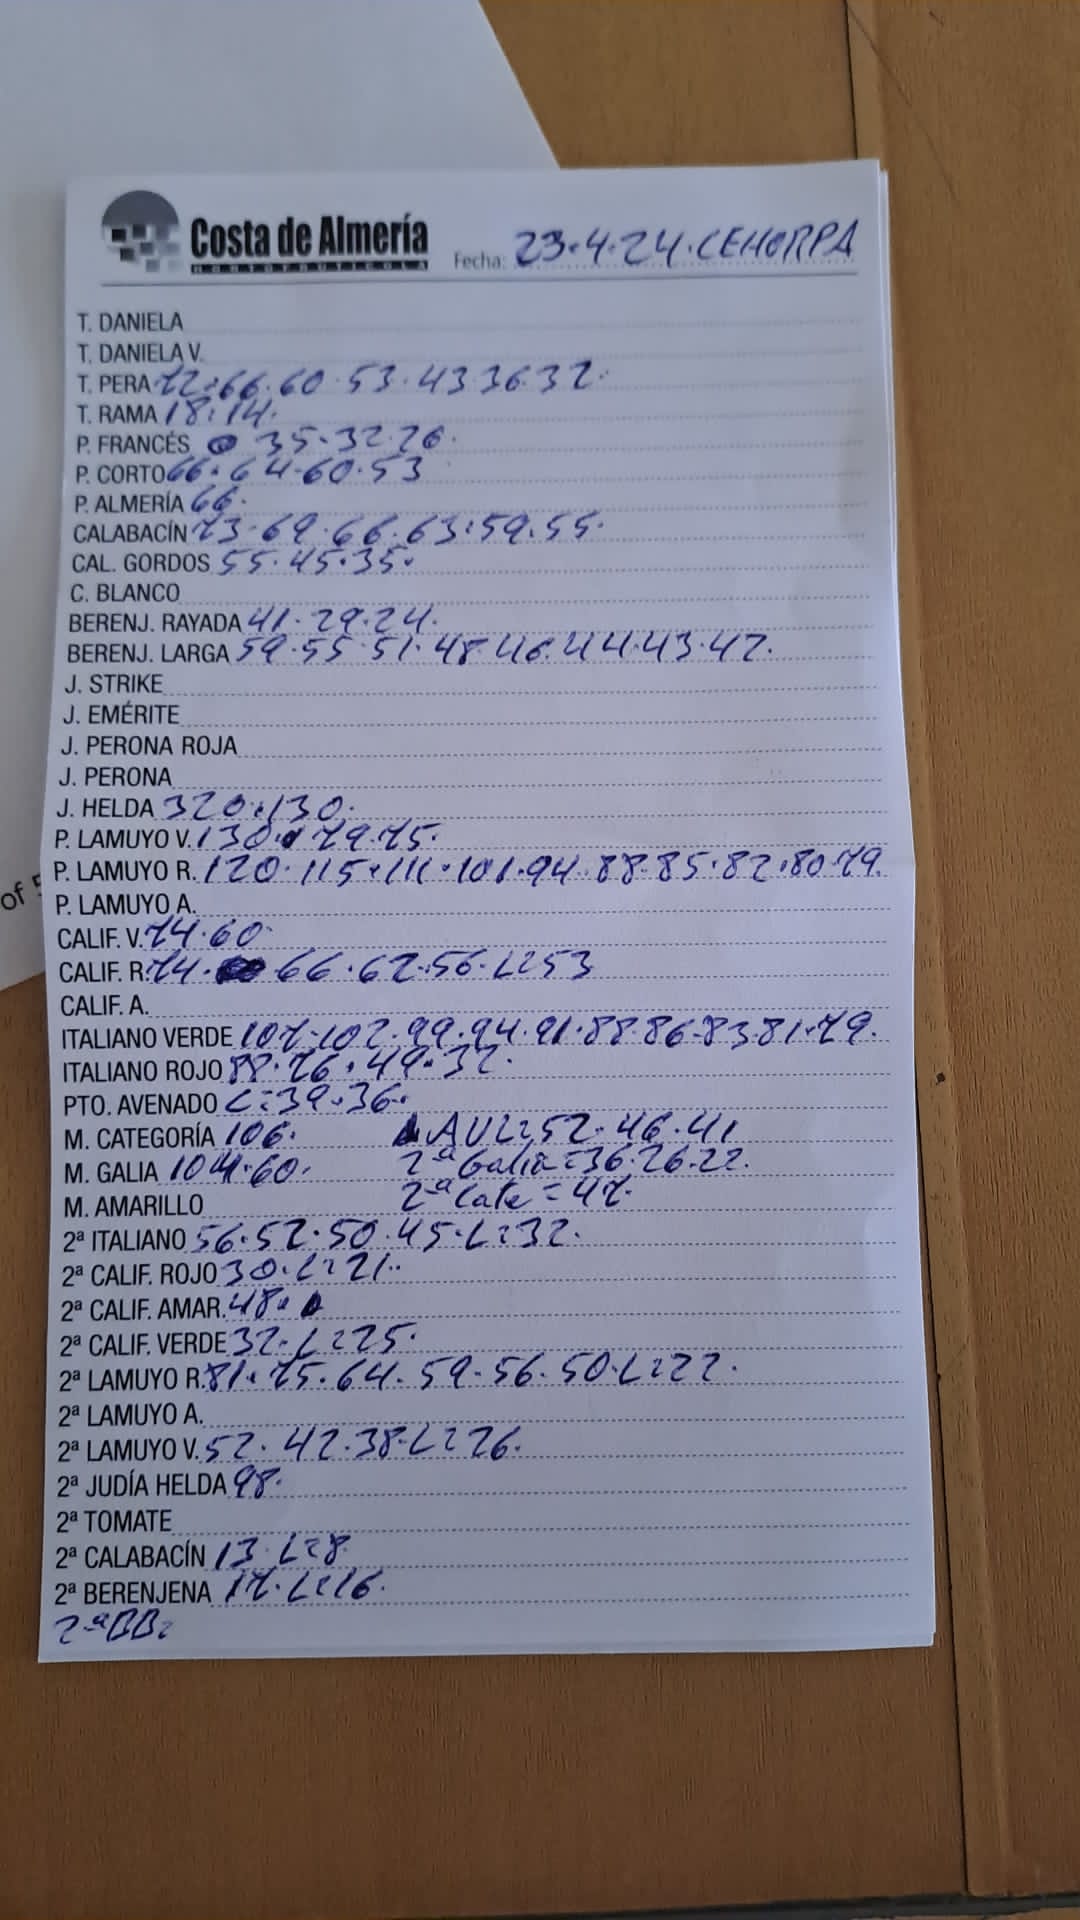 Costa de Almería
HORTOFRUTÍCOLA
Fecha: 23.4.24.CEHORPA
T. DANIELA
T. DANIELA V.
T. PERA 72.66.60.53.43.36.32.
T. RAMA 18.14.
P. FRANCÉS 35.32.26.
P. CORTO 66.64.60.53
P. ALMERÍA 66.
CALABACÍN 73.69.66.63.59.55.
CAL. GORDOS 55.45.35.
C. BLANCO
BERENJ. RAYADA 41.29.24.
BERENJ. LARGA 59.55.51.48.46.44.43.42.
J. STRIKE
J. EMÉRITE
J. PERONA ROJA
J. PERONA
J. HELDA 320.130.
P. LAMUYO V. 130.79.75.
P. LAMUYO R. 120.115.111.101.94.88.85.82.80.79.
P. LAMUYO A.
CALIF. V. 74.60
CALIF. R. 74.66.62.56.L=53
CALIF. A.
ITALIANO VERDE 107.102.99.94.91.88.86.83.81.79.
ITALIANO ROJO 88.76.49.32.
PTO. AVENADO L=39.36.
M. CATEGORÍA 106. AUL=52.46.41
M. GALIA 104.60. 2ª Galia=36.26.22.
M. AMARILLO 2ª Cate=47.
2ª ITALIANO 56.52.50.45.L=32.
2ª CALIF. ROJO 30.L=21.
2ª CALIF. AMAR. 48.
2ª CALIF. VERDE 32.L=25.
2ª LAMUYO R. 81.75.64.59.56.50.L=22.
2ª LAMUYO A.
2ª LAMUYO V. 52.42.38.L=26.
2ª JUDÍA HELDA 98.
2ª TOMATE
2ª CALABACÍN 13.L=8
2ª BERENJENA 17.L=16.
2ªBB=
of